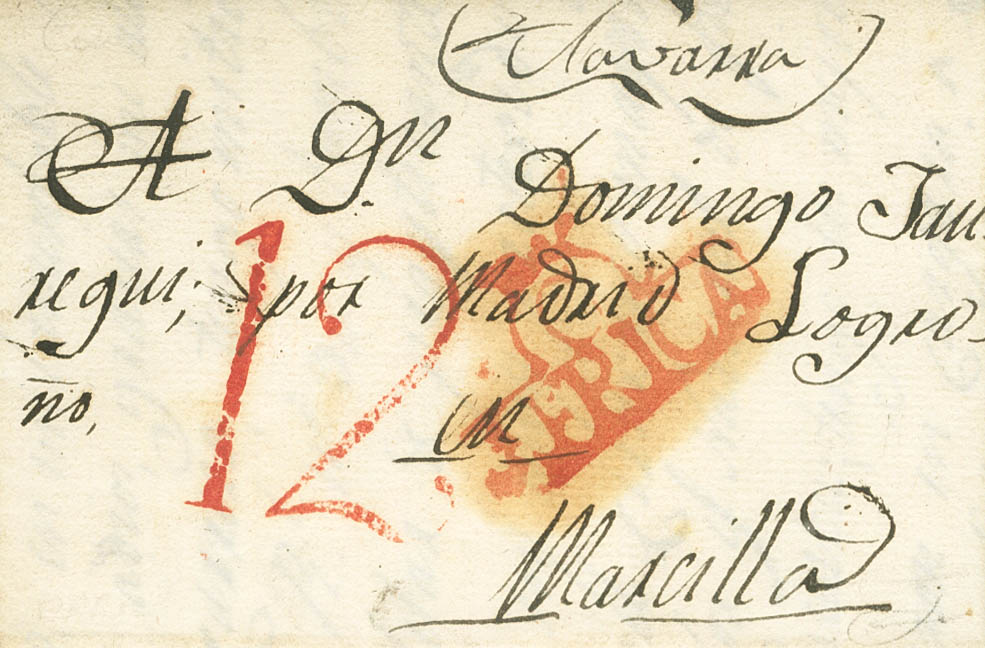 Navarra
A Dn. Domingo Jau-
regui; por Madrid Logro-
ño,
12
en
Marcilla